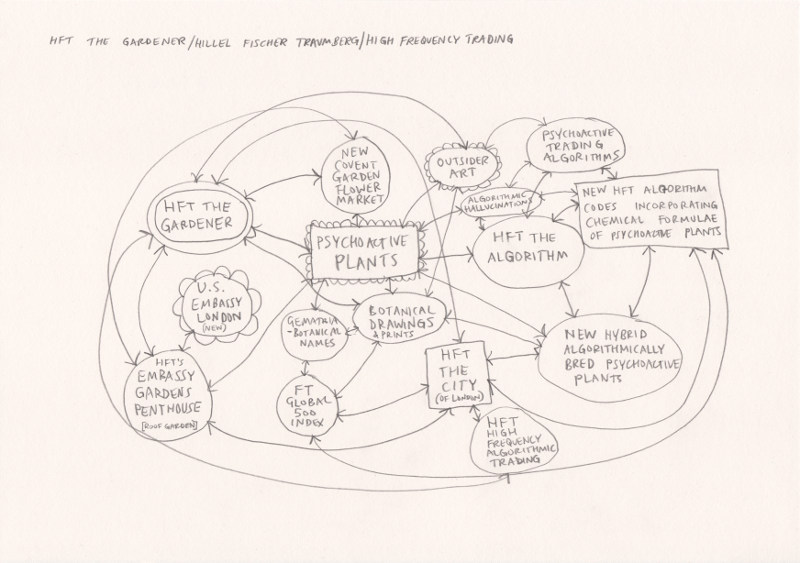 HFT THE GARDENER/HILLEL FISCHER TRAUMBERG/HIGH FREQUENCY TRADING
NEW
COVENT
GARDEN
FLOWER
MARKET
OUTSIDER
ART
PSYCHOACTIVE
TRADING
ALGORITHMS
HFT THE
GARDENER
ALGORITHMIC
HALLUCINATIONS
NEW HFT ALGORITHM
CODES INCORPORATING
CHEMICAL FORMULAE
OF PSYCHOACTIVE PLANTS
PSYCHOACTIVE
PLANTS
HFT THE
ALGORITHM
U.S.
EMBASSY
LONDON
(NEW)
GEMATRIA
-BOTANICAL
NAMES
BOTANICAL
DRAWINGS
& PRINTS
NEW HYBRID
ALGORITHMICALLY
BRED PSYCHOACTIVE
PLANTS
HFT'S
EMBASSY
GARDENS
PENTHOUSE
[ROOF GARDEN]
FT
GLOBAL
500
INDEX
HFT
THE
CITY
(OF LONDON)
HFT
HIGH
FREQUENCY
ALGORITHMIC
TRADING